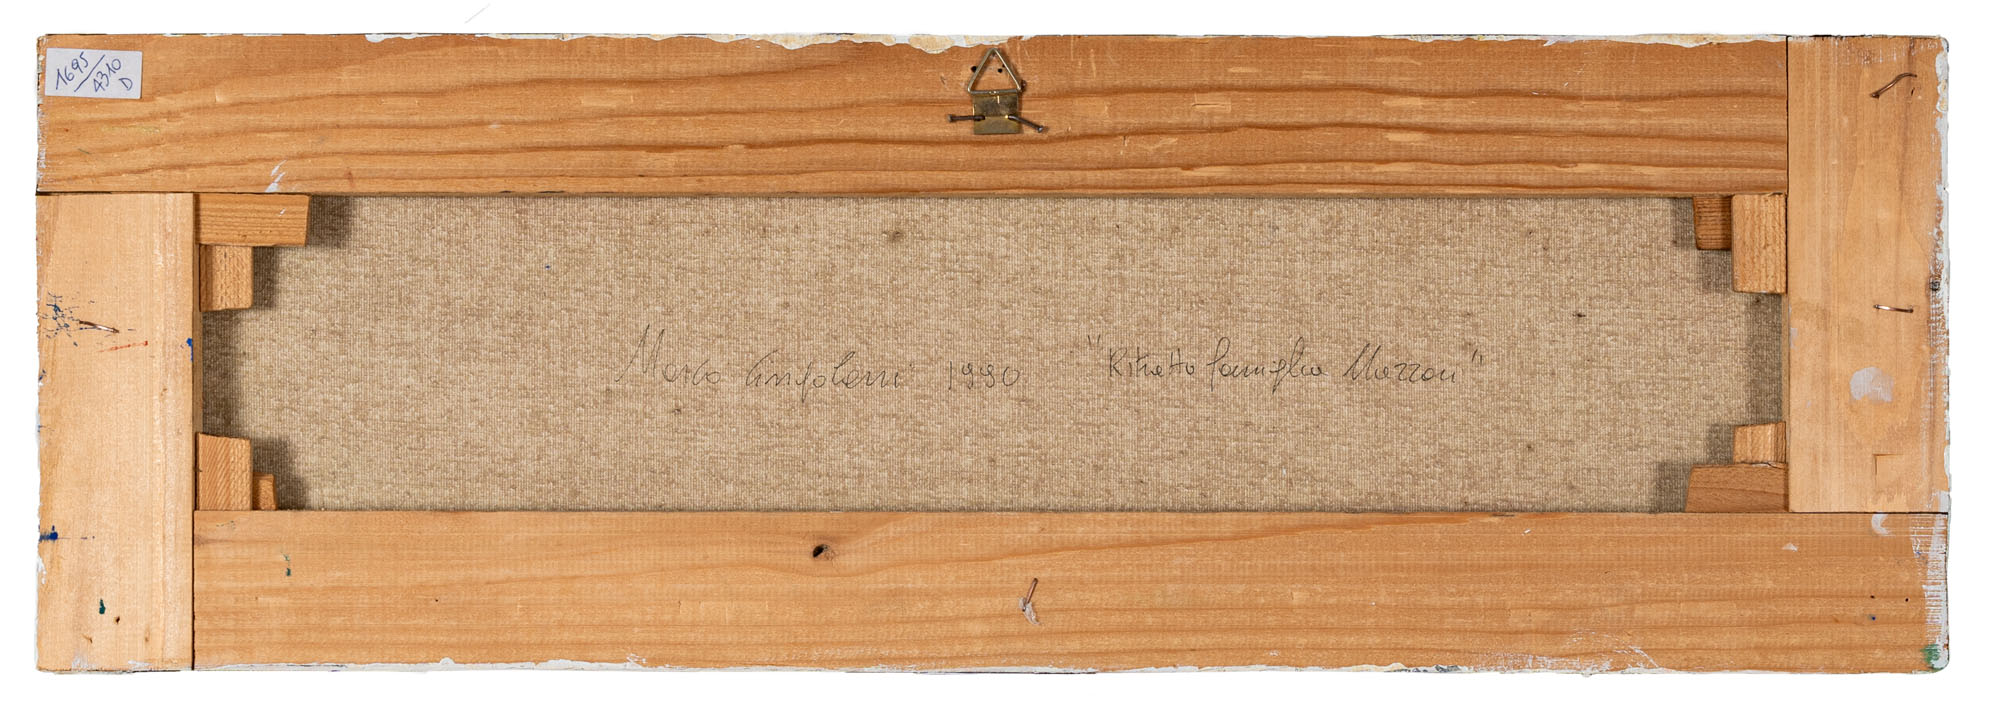 1695/4310
D
Marco Cingolani 1990 "Ritratto famiglia Mazzoni"